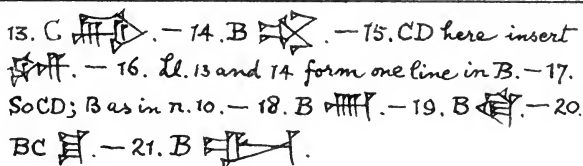 13. C .— 14. B .— 15. CD here insert
.— 16. Ll. 13 and 14 form one line in B.— 17.
So CD; B as in n. 10.— 18. B .— 19. B .— 20.
BC .— 21. B .